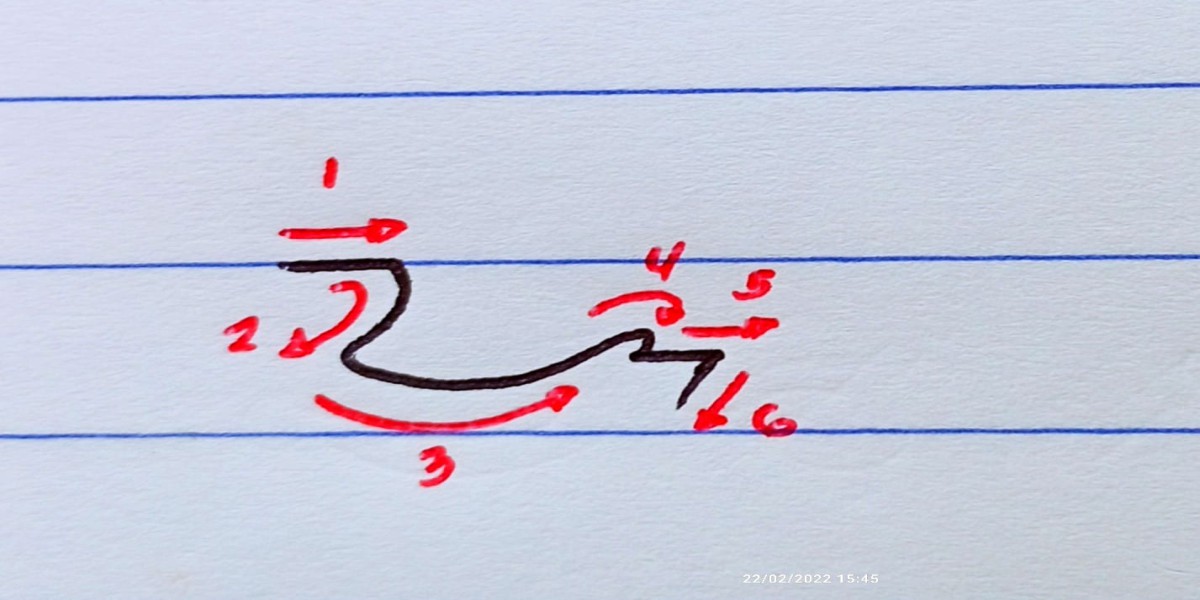 1
4
5
2
6
3
22/02/2022 15:45